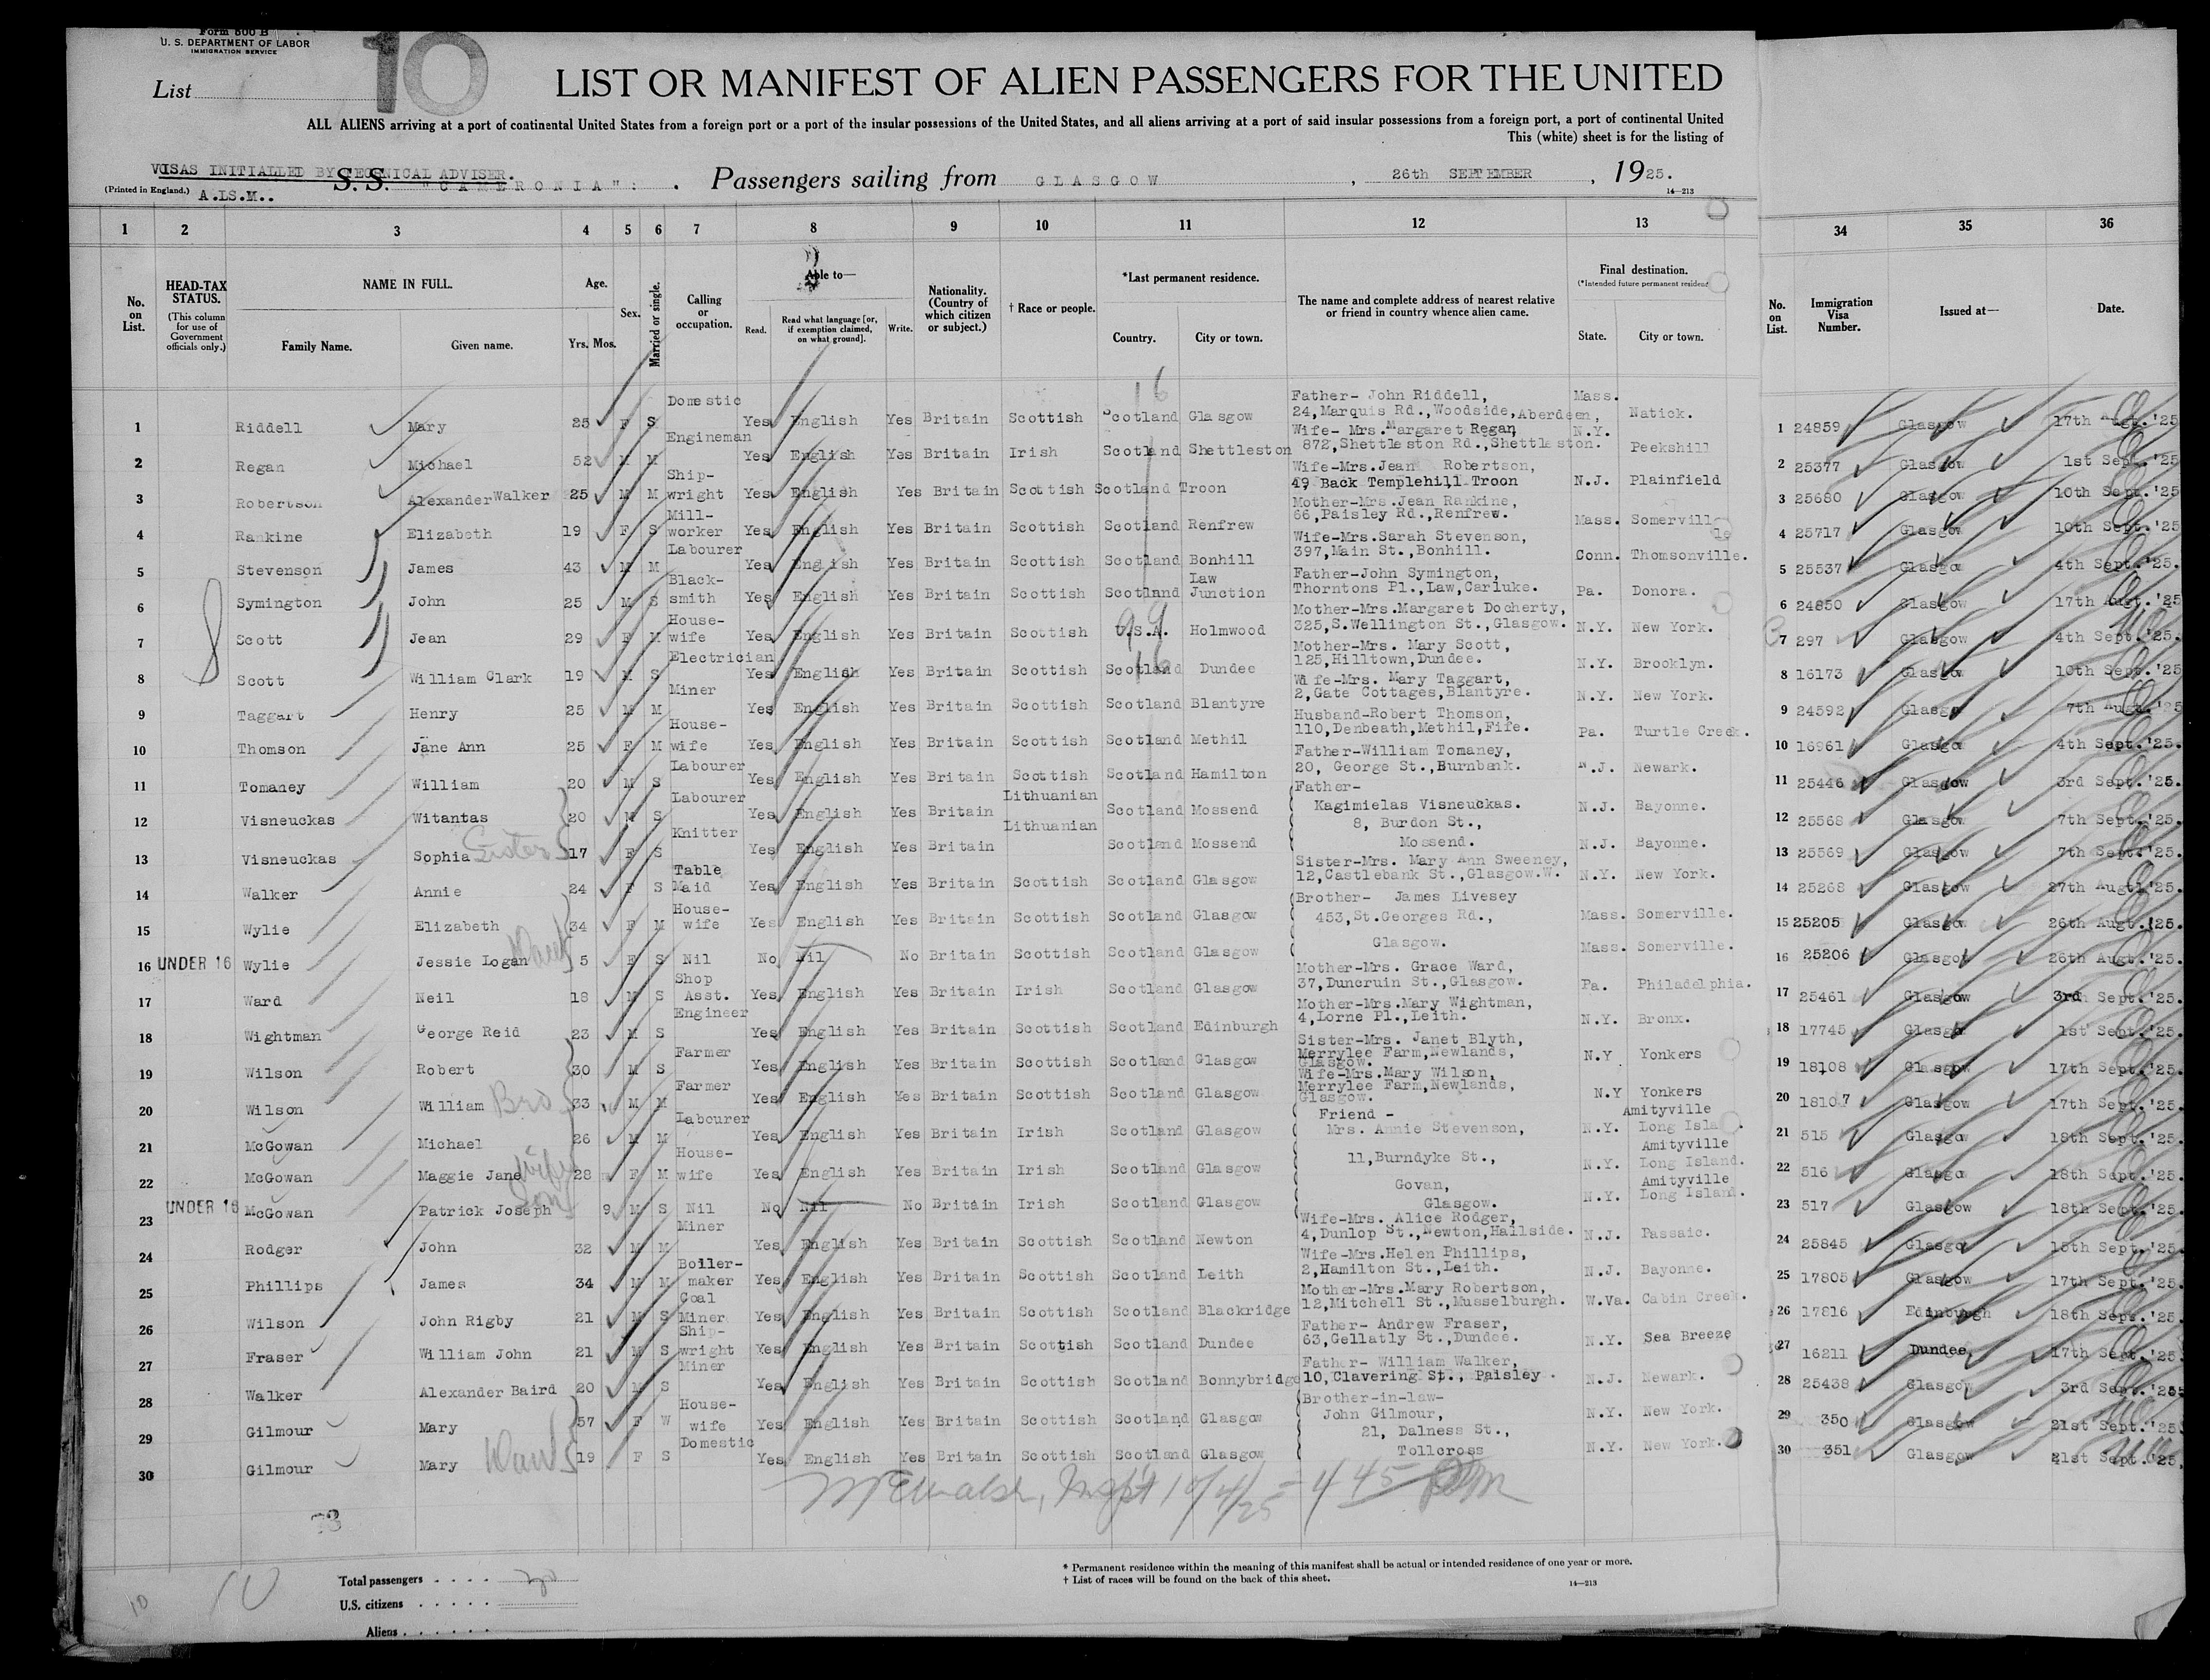 Form 800 B
U. S. DEPARTMENT OF LABOR
IMMIGRATION SERVICE
10
List
LIST OR MANIFEST OF ALIEN PASSENGERS FOR THE UNITED
ALL ALIENS arriving at a port of continental United States from a foreign port or a port of the insular possessions of the United States, and all aliens arriving at a port of said insular possessions from a foreign port, a port of continental United
This (white) sheet is for the listing of
VISAS INITIALLED BY TECHNICAL ADVISER.
(Printed in England.) A.LS.M..
S. S. "CAMERONIA": . Passengers sailing from GLASGOW , 26th SEPTEMBER , 1925.
14—213
1 2 3 4 5 6 7 8 9 10 11 12 13 34 35 36
No. on List.
HEAD-TAX STATUS. (This column for use of Government officials only.)
NAME IN FULL. Family Name. Given name.
Age. Yrs. Mos.
Sex.
Married or single.
Calling or occupation.
Able to— Read. Read what language [or, if exemption claimed, on what ground]. Write.
Nationality. (Country of which citizen or subject.)
† Race or people.
*Last permanent residence. Country. City or town.
The name and complete address of nearest relative or friend in country whence alien came.
Final destination. (*Intended future permanent residence State. City or town.
No. on List. Immigration Visa Number. Issued at— Date.
16
1 Riddell Mary 25 F S Domestic Yes English Yes Britain Scottish Scotland Glasgow Father- John Riddell, 24,Marquis Rd.,Woodside,Aberdeen, Mass. Natick. 1 24859 Glasgow 17th Augt.'25
2 Regan Michael 52 M M Engineman Yes English Yes Britain Irish Scotland Shettleston Wife- Mrs.Margaret Regan, 872,Shettleston Rd.,Shettleston. N.Y. Peekshill 2 25377 Glasgow 1st Sept.'25
3 Robertson Alexander Walker 25 M M Ship-wright Yes English Yes Britain Scottish Scotland Troon Wife-Mrs.Jean Robertson, 49 Back Templehill Troon N.J. Plainfield 3 25680 Glasgow 10th Sept.'25
4 Rankine Elizabeth 19 F S Mill-worker Yes English Yes Britain Scottish Scotland Renfrew Mother-Mrs.Jean Rankine, 66,Paisley Rd.,Renfrew. Mass. Somerville 4 25717 Glasgow 10th Sept.'25
5 Stevenson James 43 M M Labourer Yes English Yes Britain Scottish Scotland Bonhill Wife-Mrs.Sarah Stevenson, 397,Main St.,Bonhill. Conn. Thomsonville. 5 25537 Glasgow 4th Sept.'25.
6 Symington John 25 M S Black-smith Yes English Yes Britain Scottish Scotland Law Junction Father-John Symington, Thorntons Pl.,Law,Carluke. Pa. Donora. 6 24850 Glasgow 17th Augt.'25
7 Scott Jean 29 F M House-wife Yes English Yes Britain Scottish U.S.A. Holmwood Mother-Mrs.Margaret Docherty, 325,S.Wellington St.,Glasgow. N.Y. New York. 7 297 Glasgow 4th Sept.'25.
8 Scott William Clark 19 M S Electrician Yes English Yes Britain Scottish Scotland Dundee Mother-Mrs. Mary Scott, 125,Hilltown,Dundee. N.Y. Brooklyn. 8 16173 Glasgow 10th Sept.'25
9 Taggart Henry 25 M M Miner Yes English Yes Britain Scottish Scotland Blantyre Wife-Mrs. Mary Taggart, 2,Gate Cottages,Blantyre. N.Y. New York. 9 24592 Glasgow 7th Augt.'25
10 Thomson Jane Ann 25 F M House-wife Yes English Yes Britain Scottish Scotland Methil Husband-Robert Thomson, 110,Denbeath,Methil,Fife. Pa. Turtle Creek. 10 16961 Glasgow 4th Sept.'25.
11 Tomaney William 20 M S Labourer Yes English Yes Britain Scottish Scotland Hamilton Father-William Tomaney, 20, George St.,Burnbank. N.J. Newark. 11 25446 Glasgow 3rd Sept.'25.
12 Visneuckas Witantas 20 M S Labourer Yes English Yes Britain Lithuanian Scotland Mossend Father- Kagimielas Visneuckas. 8, Burdon St., N.J. Bayonne. 12 25568 Glasgow 7th Sept.'25.
13 Visneuckas Sophia Sister 17 F S Knitter Yes English Yes Britain Lithuanian Scotland Mossend Mossend. N.J. Bayonne. 13 25569 Glasgow 7th Sept.'25.
14 Walker Annie 24 F S Table Maid Yes English Yes Britain Scottish Scotland Glasgow Sister-Mrs. Mary Ann Sweeney, 12,Castlebank St.,Glasgow.W. N.Y. New York. 14 25268 Glasgow 27th Augt.'25.
15 Wylie Elizabeth 34 F M House-wife Yes English Yes Britain Scottish Scotland Glasgow Brother- James Livesey 453,St.Georges Rd., Mass. Somerville. 15 25205 Glasgow 26th Augt.'25.
16 UNDER 16 Wylie Jessie Logan 5 F S Nil No Nil No Britain Scottish Scotland Glasgow Glasgow. Mass. Somerville. 16 25206 Glasgow 26th Augt.'25.
17 Ward Neil 18 M S Shop Asst. Yes English Yes Britain Irish Scotland Glasgow Mother-Mrs. Grace Ward, 37,Duncruin St.,Glasgow. Pa. Philadelphia. 17 25461 Glasgow 3rd Sept.'25.
18 Wightman George Reid 23 M S Engineer Yes English Yes Britain Scottish Scotland Edinburgh Mother-Mrs.Mary Wightman, 4,Lorne Pl.,Leith. N.Y. Bronx. 18 17745 Glasgow 1st Sept.'25.
19 Wilson Robert 30 M S Farmer Yes English Yes Britain Scottish Scotland Glasgow Sister-Mrs. Janet Blyth, Merrylee Farm,Newlands, Glasgow. N.Y Yonkers 19 18108 Glasgow 17th Sept.'25.
20 Wilson William Bro 33 M M Farmer Yes English Yes Britain Scottish Scotland Glasgow Wife-Mrs.Mary Wilson, Merrylee Farm,Newlands, Glasgow. N.Y Yonkers 20 18107 Glasgow 17th Sept.'25.
21 McGowan Michael 26 M M Labourer Yes English Yes Britain Irish Scotland Glasgow Friend - Mrs. Annie Stevenson, N.Y. Amityville Long Island. 21 515 Glasgow 18th Sept.'25.
22 McGowan Maggie Jane Wife 28 F M House-wife Yes English Yes Britain Irish Scotland Glasgow 11,Burndyke St., N.Y. Amityville Long Island. 22 516 Glasgow 18th Sept.'25.
23 UNDER 16 McGowan Patrick Joseph Son 9 M S Nil No Nil No Britain Irish Scotland Glasgow Govan, Glasgow. N.Y. Amityville Long Island. 23 517 Glasgow 18th Sept.'25.
24 Rodger John 32 M M Miner Yes English Yes Britain Scottish Scotland Newton Wife-Mrs. Alice Rodger, 4,Dunlop St.,Newton,Hallside. N.J. Passaic. 24 25845 Glasgow 15th Sept.'25.
25 Phillips James 34 M M Boiler-maker Yes English Yes Britain Scottish Scotland Leith Wife-Mrs.Helen Phillips, 2,Hamilton St.,Leith. N.J. Bayonne. 25 17805 Glasgow 17th Sept.'25.
26 Wilson John Rigby 21 M S Coal Miner Yes English Yes Britain Scottish Scotland Blackridge Mother-Mrs.Mary Robertson, 12,Mitchell St.,Musselburgh. W.Va. Cabin Creek. 26 17816 Edinburgh 18th Sept.'25.
27 Fraser William John 21 M S Ship-wright Yes English Yes Britain Scottish Scotland Dundee Father- Andrew Fraser, 63,Gellatly St.,Dundee. N.Y. Sea Breeze 27 16211 Dundee 17th Sept.'25.
28 Walker Alexander Baird 20 M S Miner Yes English Yes Britain Scottish Scotland Bonnybridge Father- William Walker, 10,Clavering St., Paisley. N.J. Newark. 28 25438 Glasgow 3rd Sept.'25
29 Gilmour Mary 57 F W House-wife Yes English Yes Britain Scottish Scotland Glasgow Brother-in-law- John Gilmour, 21, Dalness St., N.Y. New York. 29 350 Glasgow 21st Sept.'25
30 Gilmour Mary 19 F S Domestic Yes English Yes Britain Scottish Scotland Glasgow Tollcross N.Y. New York. 30 351 Glasgow 21st Sept.'25.
* Permanent residence within the meaning of this manifest shall be actual or intended residence of one year or more.
† List of races will be found on the back of this sheet.
14—213
10
Total passengers . . . . 30
U.S. citizens . . . . .
Aliens . . . . . .